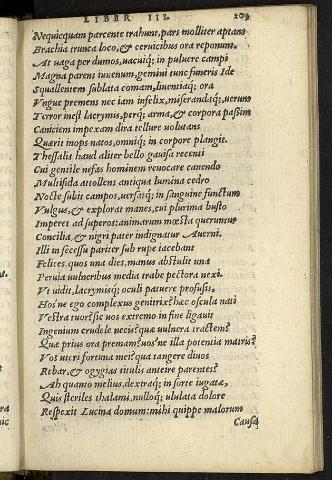 LIBER III. 203
Nequicquam parcente trahunt, pars molliter aptant
Brachia trunca loco, & ceruicibus ora reponunt.
At uaga per dumos, uacuiq; in puluere campi
Magna parens iuuenum, gemini tunc funeris Ide
Squallentem sublata comam, liuentiaq; ora
Vngue premens nec iam infelix, miserandaq;, uerum
Terror inest lacrymis, perq; arma, & corpora passim
Canitiem impexam dira tellure uolutans
Quærit inops natos, omniq; in corpore plangit.
Thessalis haud aliter bello gauisa recenti
Cui gentile nefas hominem reuocare canendo
Multifida attollens antiqua lumina cedro
Nocte subit campos, uersatq; in sanguine functum
Vulgus, & explorat manes, cui plurima busto
Imperet ad superos: animarum mœsta queruntur
Concilia, & nigri pater indignatur Auerni.
Illi in secessu pariter sub rupe iacebant
Felices, quos una dies, manus abstulit una
Peruia uulneribus media trabe pectora nexi.
Vt uidit, lacrymisq; oculi patuere profusis,
Hos'ne ego complexus genitrix? hæc oscula nati
Vestra tuor? sic uos extremo in fine ligauit
Ingenium crudele necis? quæ uulnera tractem?
Quæ prius ora premam? uos'ne illa potentia matris?
Vos uteri fortuna mei? qua tangere diuos
Rebar, & ogygias titulis anteire parentes?
Ah quanto melius, dextraq; in sorte iugatæ,
Quis steriles thalami, nulloq; ululata dolore
Respexit Lucina domum: mihi quippe malorum
Causa